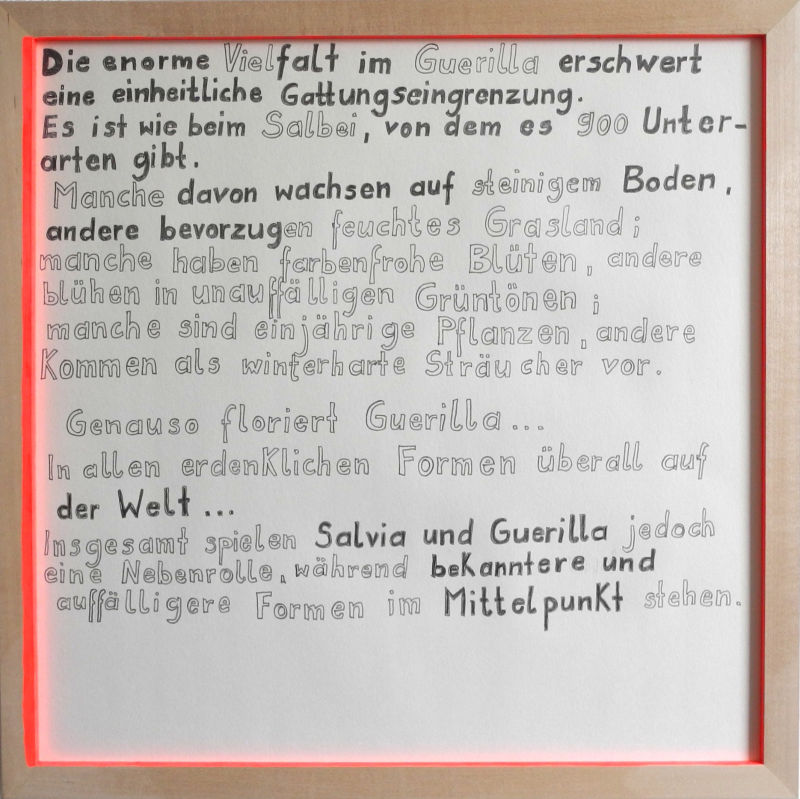 Die enorme Vielfalt im Guerilla erschwert
eine einheitliche Gattungseingrenzung.
Es ist wie beim Salbei, von dem es 900 Unter-
arten gibt.
Manche davon wachsen auf steinigem Boden,
andere bevorzugen feuchtes Grasland;
manche haben farbenfrohe Blüten, andere
blühen in unauffälligen Grüntönen;
manche sind einjährige Pflanzen, andere
Kommen als winterharte Sträucher vor.
Genauso floriert Guerilla...
In allen erdenKlichen Formen überall auf
der Welt...
Insgesamt spielen Salvia und Guerilla jedoch
eine Nebenrolle, während beKanntere und
auffälligere Formen im MittelpunKt stehen.